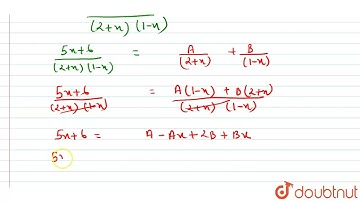 (2+x) (1-x)
5x+6 / (2+x) (1-x) = A / (2+x) + B / (1-x)
5x+6 / (2+x) (1-x) = A(1-x) + B(2+x) / (2+x) (1-x)
5x+6 = A - Ax + 2B + Bx
5
doubtnut